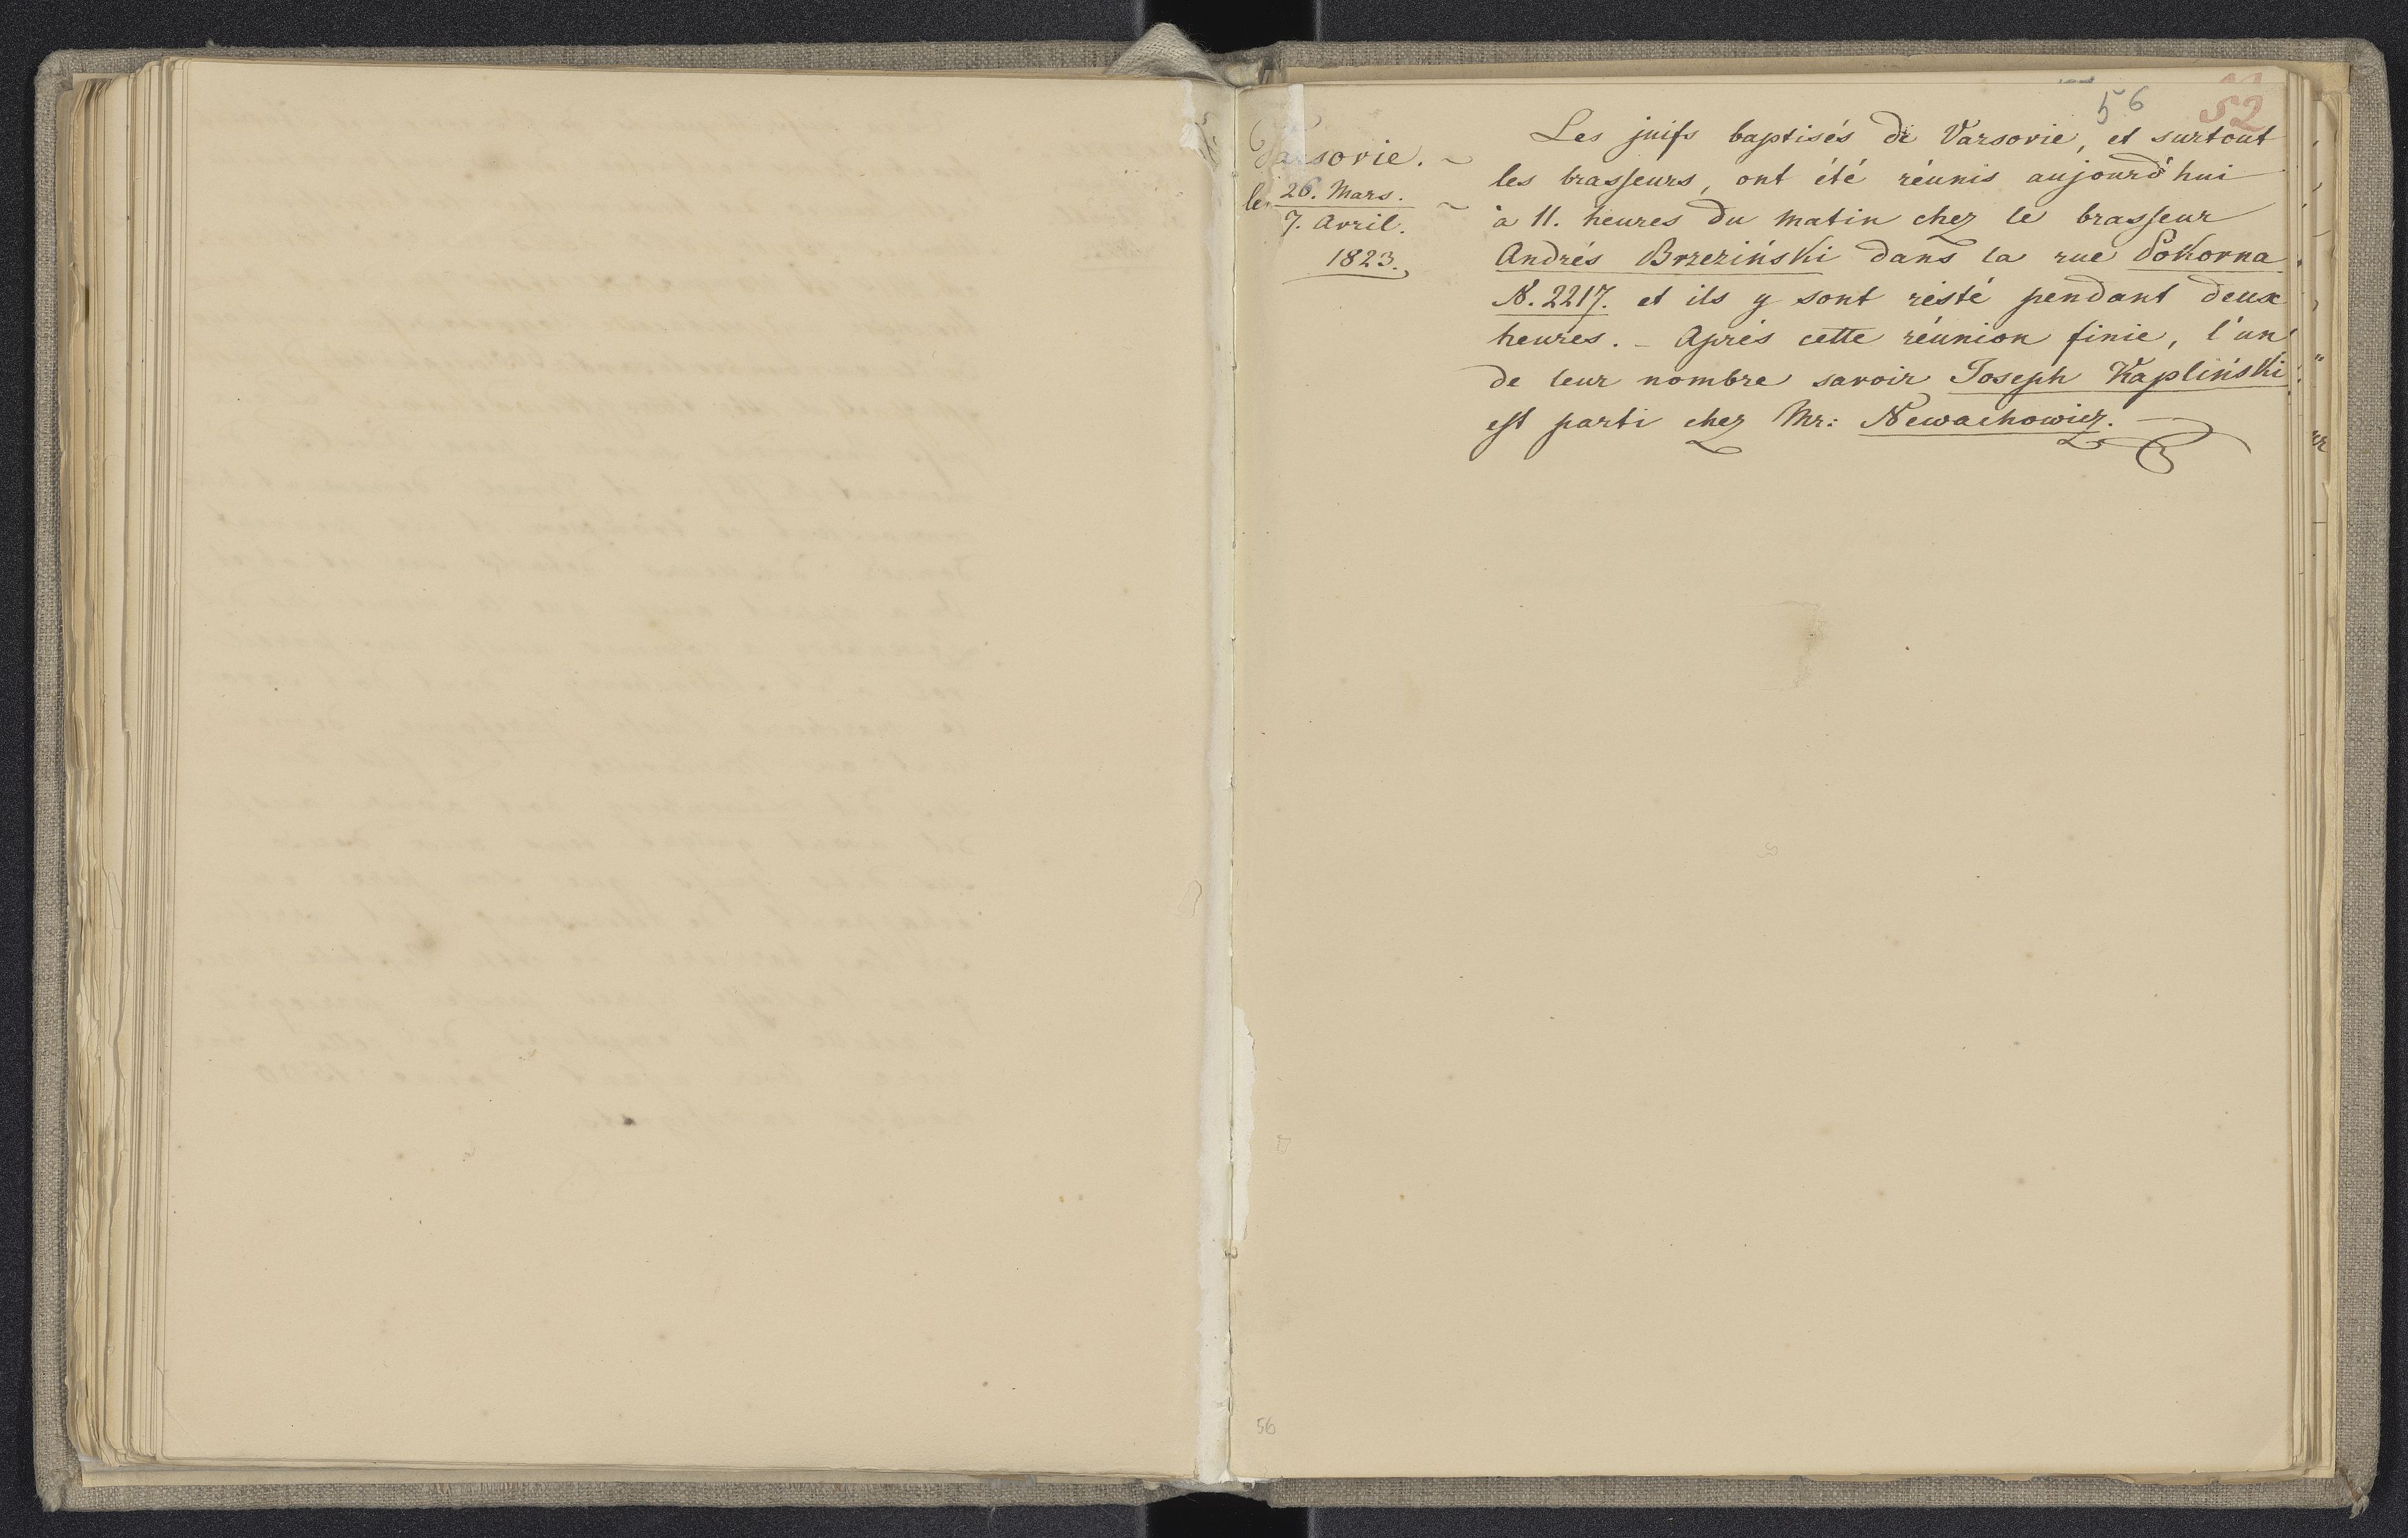 56 52
Varsovie. ~
le 26. Mars. ~
7. Avril.
1823.
Les juifs baptisés de Varsovie, et surtout
les brasseurs, ont été réunis aujourd'hui
à 11. heures du matin chez le brasseur
Andrés Brzeziński dans la rue Pokorna
N. 2217. et ils y sont résté pendant deux
heures. – Aprés cette réunion finie, l'un
de leur nombre savoir Joseph Kapliński
est parti chez Mr: Newachowicz.
56